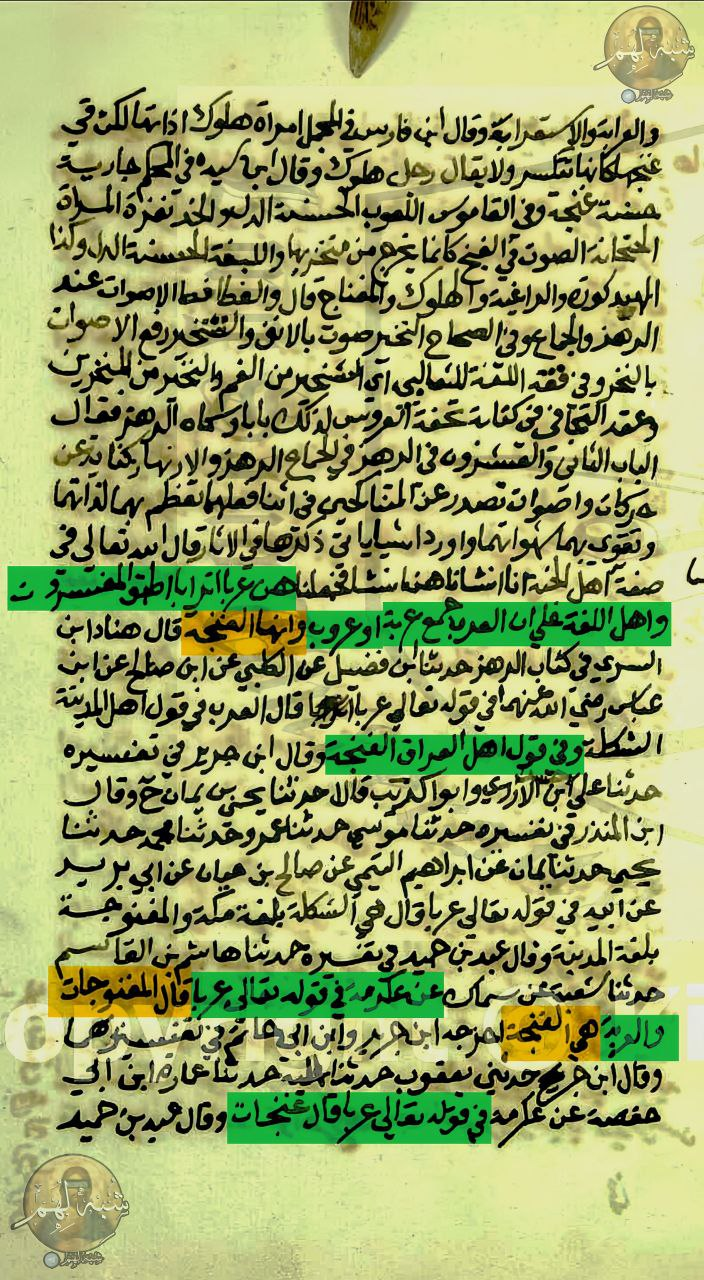 والعرابة والاستعرابة وقال ابن فارس في المجمل امرأة هلوك اذا تهالكت في
غنجها كانها تتكسر ولا يقال رجل هلوك وقال ابن سيده في المحكم جارية
حسنة غنجة وفي القاموس اللعوب الحسنة الدل والخد نفرة المرأة
الصوت في الغنج كانما يخرج من منخريها واللبقة الحسنة الدل وكذا
والهلوك والمغناج قال والغطافط الاصوات عند
الرهز والجماع وفي الصحاح النخير صوت بالانف رفع الاصوات
بالنخر وفي فقه اللغة للثعالبي من الفم والنخير من المنخرين
وعقد التجاني في كتابه تحفة العروس لذلك بابا وسماه الرهز فقال
الباب الثاني والعشرون في الرهز في الجماع الرهز والارتهاز كناية عن
حركات واصوات تصدر عن المتناكحين في اثنا فعلهما تعظم بهما لذاتهما
وتقوي بهما شهواتهما واورد اشيا ياتي ذكرها في الاثار قال الله تعالى في
صفة اهل الجنة انا انشاناهن انشا فجعلناهن عربا اترابا اطبق المفسرون
واهل اللغة علي ان العرب جمع عربة او عروب وانها الغنجة قال هناد ابن
السري في كتاب الرهز حدثنا ابن فضيل عن الكلبي عن ابن صالح عن ابن
عباس رضي الله عنهما في قوله تعالى عربا قال العرب في قول اهل المدينة
الشكلة وفي قول اهل العراق الغنجة وقال ابن جرير في تفسيره
حدثنا علي ابن وابوا كريب قالا حدثنا يحيى بن يمان ح وقال
ابن المنذر في تفسيره حدثنا موسي حدثنا عمر وحدثنا محمد حدثنا
يحيى حدثنا يمان عن ابراهيم التيمي عن صالح بن حيان عن ابي بريد
عن ابيه في قوله تعالى عربا قال هي الشكلة بلغة مكة والمغنوجة
بلغة المدينة وقال عبد بن حميد في تفسيره حدثنا هاشم بن القاسم
حدثنا شعبة عن سماك عن عكرمة في قوله تعالى عربا قال المغنوجات
والعربة هي الغنجة اخرجه ابن جرير وابن ابي حاتم في تفسيرهما
وقال ابن حدثني يعقوب حدثنا حدثنا عمارة ابن ابي
حفصة عن عكرمة في قوله تعالى عربا قال غنجات وقال عبد بن حميد